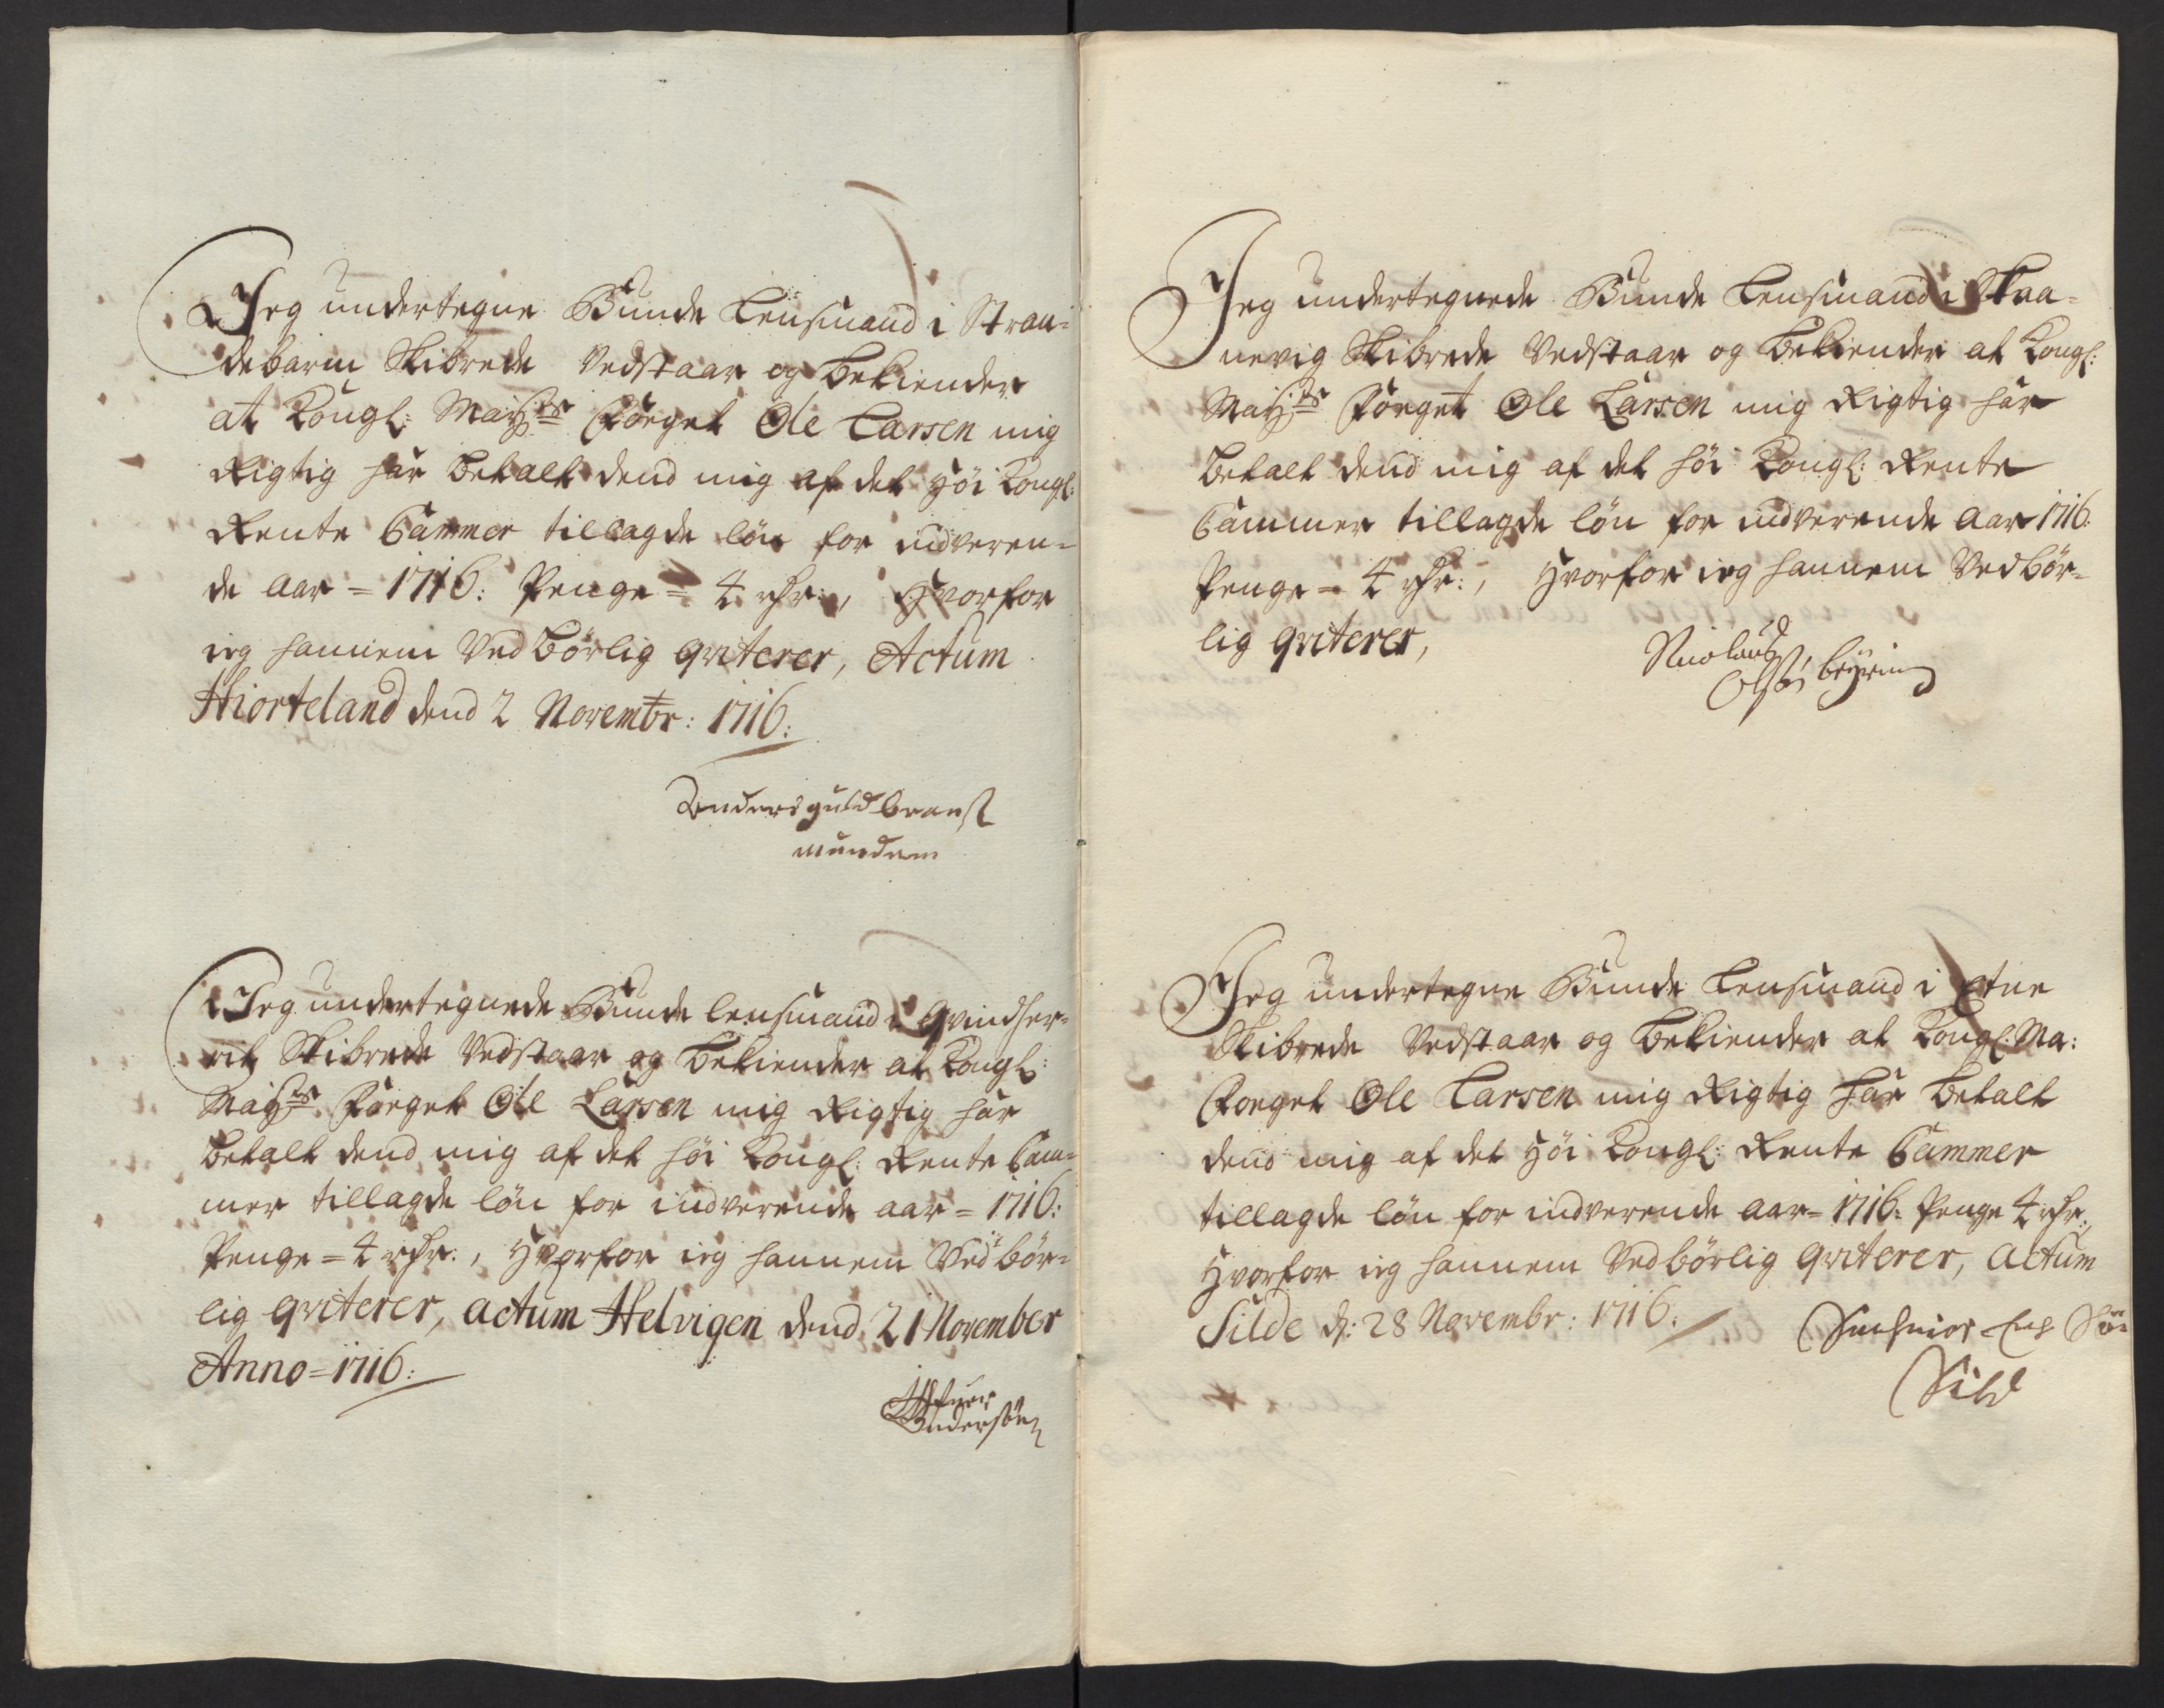 Jeg undertegne Bunde Lensmand i Stran-
debarm Skibrede Vedstaar og bekiender
at Kongl: May:ts Foeget Ole Larsen mig
Rigtig har betalt dend mig af det Höi Kongl:
Rente Cammer tillagde lön for indveren-
de aar = 1716: Penge = 4 rdr:, Hvorfor
ieg hannem Vedbörlig qviterer, Actum
Hiorteland dend 2 Novembr: 1716:
Anders guldbrans
mundem
Jeg undertegnede Bunde lensmand i Qvindher-
rit Skibrede Vedstaar og bekiender at Kongl:
May:ts Foeget Ole Larsen mig Rigtig har
betalt dend mig af det höi Kongl: Rente Cam-
mer tillagde lön for indverende aar = 1716:
Penge = 4 rdr:, Hvorfor ieg hannem Vedbör-
lig qviterer, actum Helvigen dend 21 November
Anno = 1716:
Andersön
Jeg undertegnede Bunde Lensmand i Skaa-
nevig Skibrede Vedstaar og bekiender at Kongl:
May:ts Foeget Ole Larsen mig Rigtig har
betalt dend mig af det höi Kongl: Rente
Cammer tillagde lön for indverende aar 1716:
Penge = 4 rdr:, Hvorfor ieg hannem Vedbör-
lig qviterer,
Nicolaus
Jeg undertegne Bunde Lensmand i Etne
Skibrede Vedstaar og bekiender at Kongl: Ma:
Foeget Ole Larsen mig Rigtig har betalt
dend mig af det Höi Kongl: Rente Cammer
tillagde lön for indverende aar = 1716: Penge 4 rdr:,
Hvorfor ieg hannem Vedbörlig qviterer, actum
Silde d: 28 Novembr: 1716:
Sild